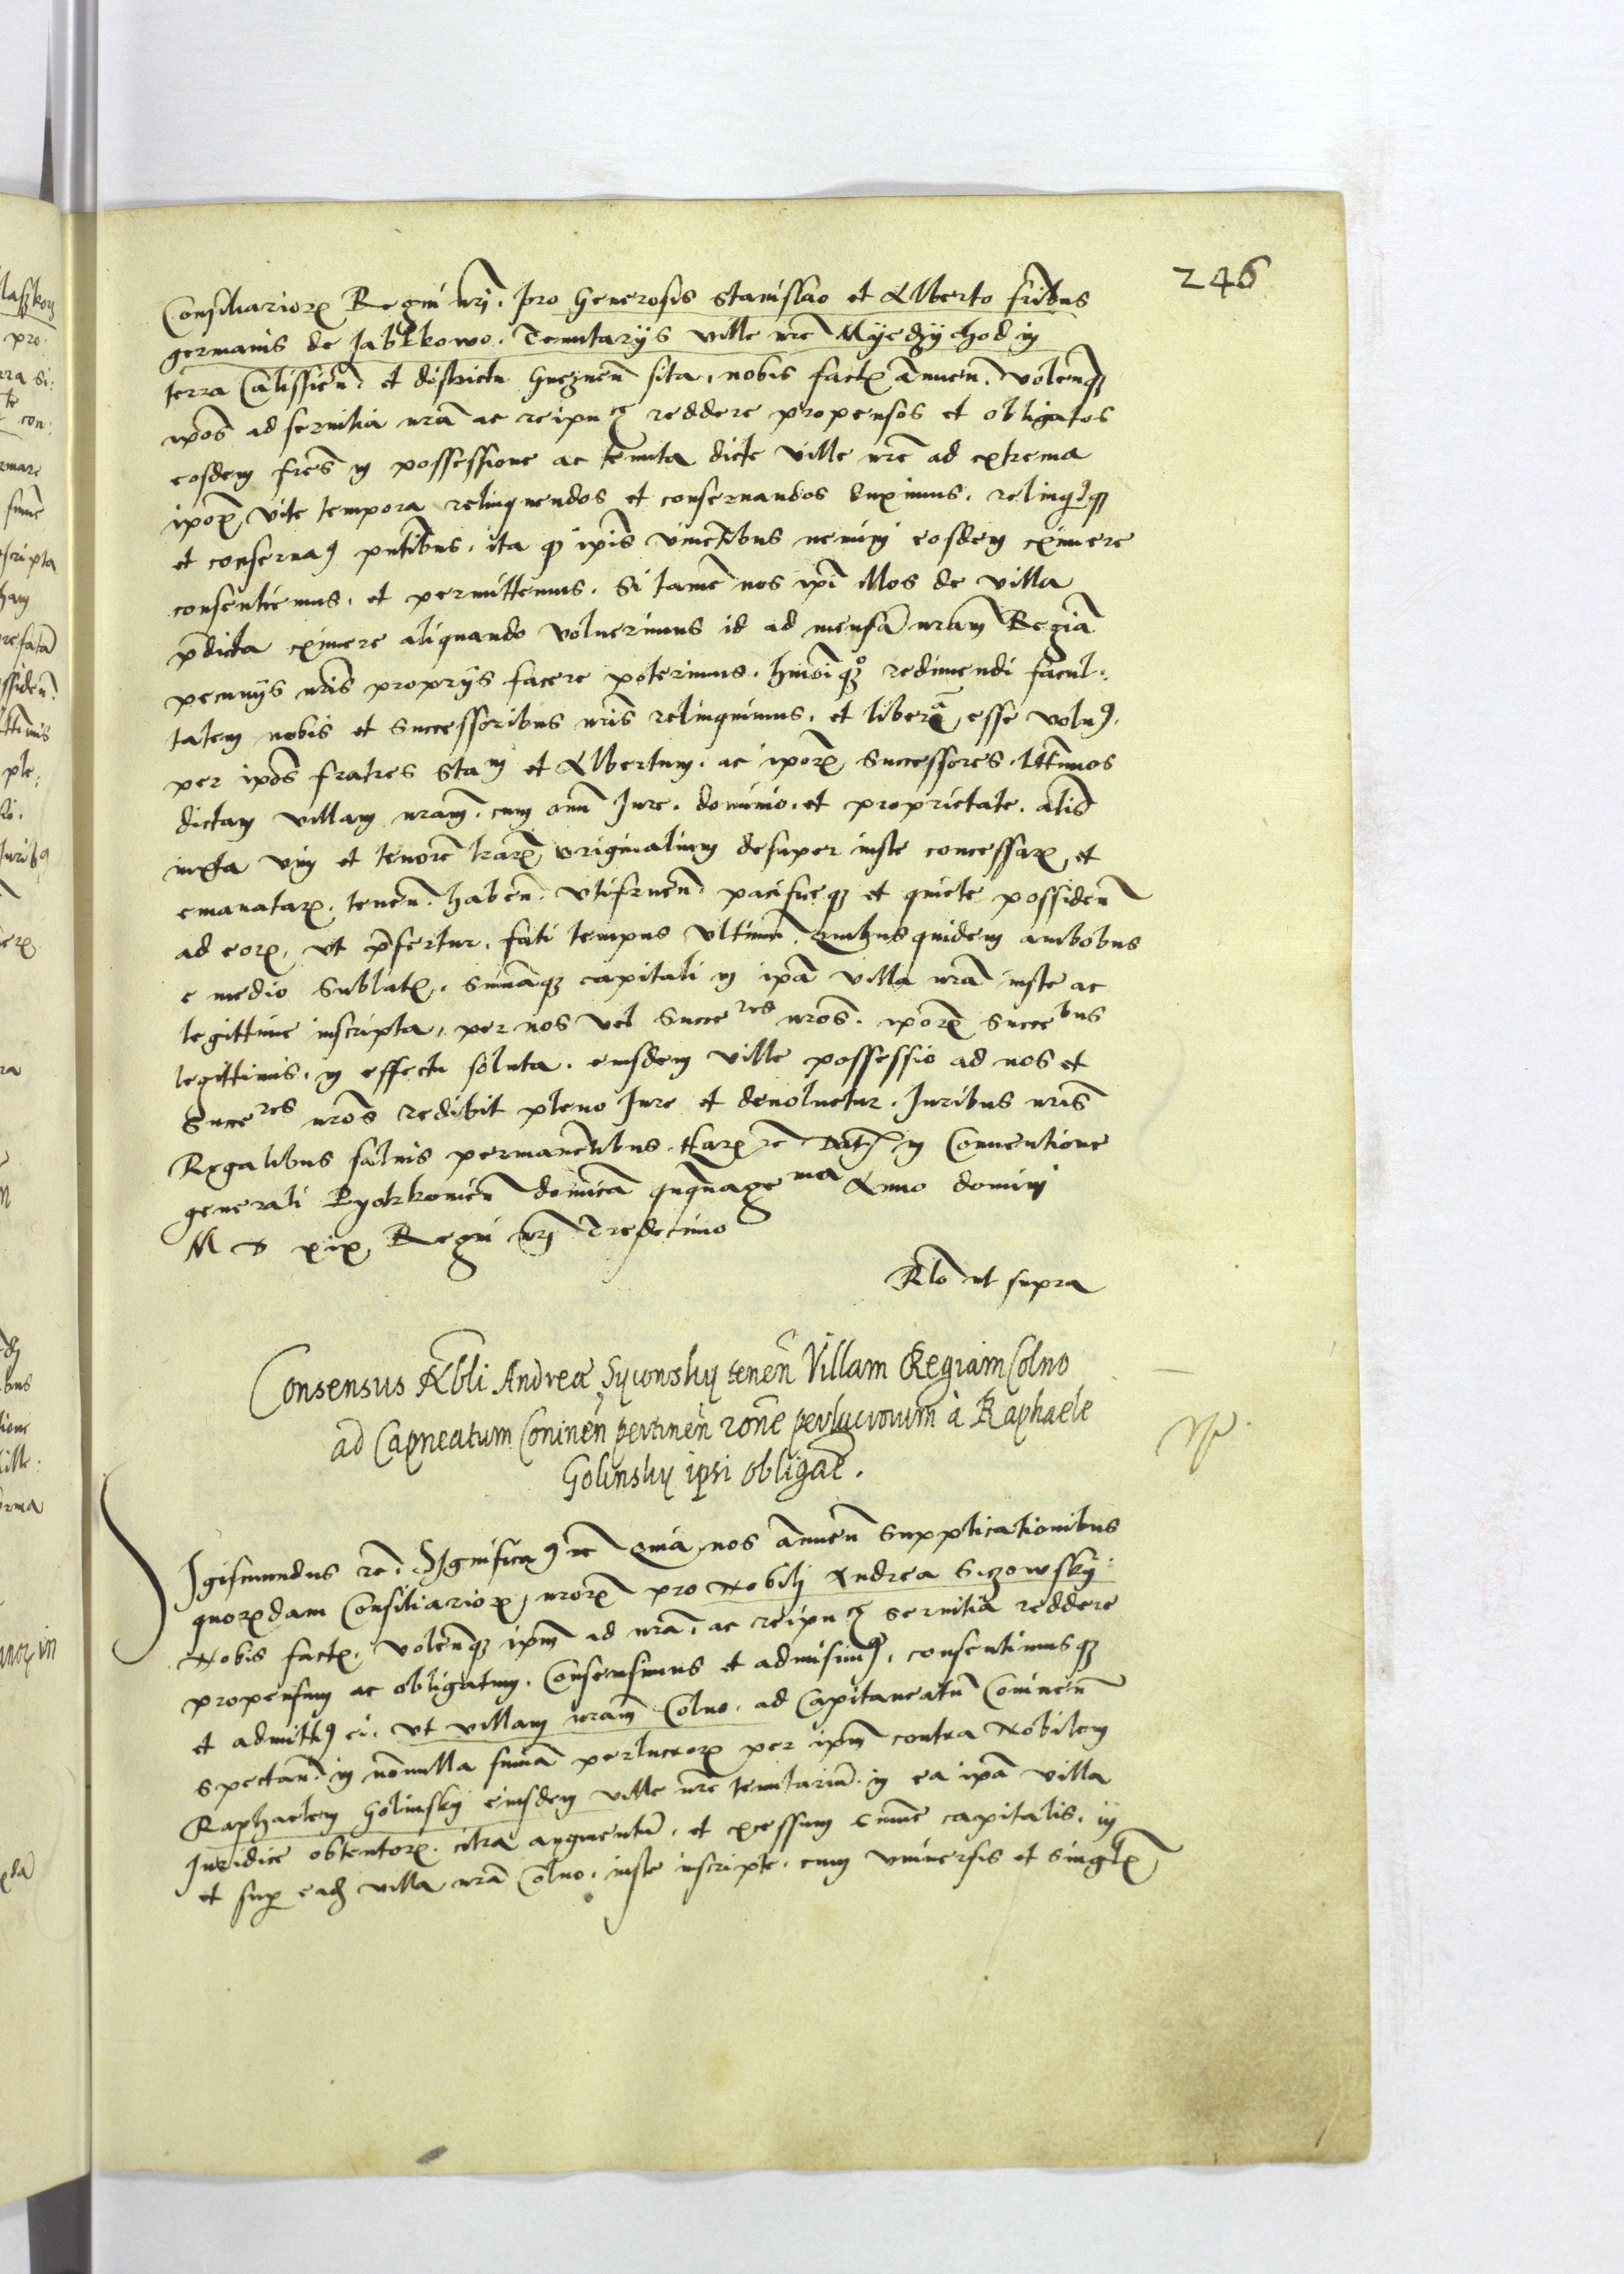 246
Consiliariorꝝ Regni nrj̃. pro Generosis Stanislao et Alberto fribus
germanis de Jablkowo. Tenutarijs ville nrẽ Myedzychod in
terra Calissien̄. et districtu Gneznen̄ sita, nobis factꝭ annuen̄. volenqʒ
ip̄os ad seruitia nr̄a ac reipu ce reddere propensos et obligatos
eosdem fres̄ in possessione ac tenuta dicte ville nrē ad extrema
ip̄orꝝ vite tempora relinquendos et conseruandos duximus. relinqꝰqʒ
et conseruaꝰ pn̄tibus. ita qʒ ip̄is viuen̄tibus nemini eosdem eximere
consentiemus. et permittemus. Si tamē nos ip̄i illos de villa
p̄dicta eximere aliquando voluerimus id ad mensā nram Regiā
pecunijs nr̄is proprijs facere poterimus. hmōiqʒ redimendi facul:
tatem nobis et successoribus nr̄is relinquimus. et liberā esse voluꝰ.
per ip̄os fratres Sta m et Albertum. ac ip̄orꝝ successores. lttimos
dictam villam nram̄. cum om̄i Jure. dominio. et proprietate. al̄is
iuxta vim et tenorē l̄rarꝝ originalium desuper iuste concessarꝝ et
emanatarꝝ. tenen̄. haben̄. vtifruen̄. pacificeqʒ et quiete possiden̄
ad eorꝝ, vt p̄fertur. fati tempus vltimū. Quibus quidem ambobus
e medio sublatꝭ. Summaqʒ capitali in ip̄a villa nr̄a iuste ac
legittime inscripta, per nos vel Succe res nros̄. ip̄orꝝ Succe bus
legittimis. in effectu soluta. eiusdem ville possessio ad nos et
Succe res nros̄ redibit pleno Jure et deuoluetur. Juribus nr̄is
Regalibus saluis permanen̄tibus. Harꝝ rc̄ Datꝭ in Conuentione
generali Pyotrkouien̄ dominica quīquage ma Anno domini
M D xix, Regni nrj̄ Tredecimo
Rlō ut supra
Consensus Nobli Andreæ Syconsky tenen̄ Villam Regiam Colno
ad Capneatum Coninen̄ pertinen̄ rōne perlucrorum à Raphaele
Golinsky ipsi obligate.
Sigismundus rc̄. Significaꝰ rc̄ Quia nos annuen̄ Supplicationibus
quorꝝdam Consiliariorꝝ, nrorꝝ pro Nobilj Andrea Siczowsky
Nobis factꝭ. volen̄qʒ ip̄m ad nr̄a. ac reipu ce seruitia reddere
propensum ac obligatum. Consensimus et admisimꝰ, consentimusqʒ
et admittꝰ ei. vt villam nram̄ Colno. ad Capitaneatū Coninen̄
spectan̄. in nōnulla sum̄a perlucrorꝝ per ip̄m contra Nobilem
Raphaelem Golinsky eiusdem ville nrē tenutariū. in ea ip̄a villa
Juridice obtentorꝝ. citra augmentū. et excessum Sum̄e capitalis. in
et sup̱ eadʒ villa nr̄a Colno. iuste inscripte. cum vniuersis et singlꝭ